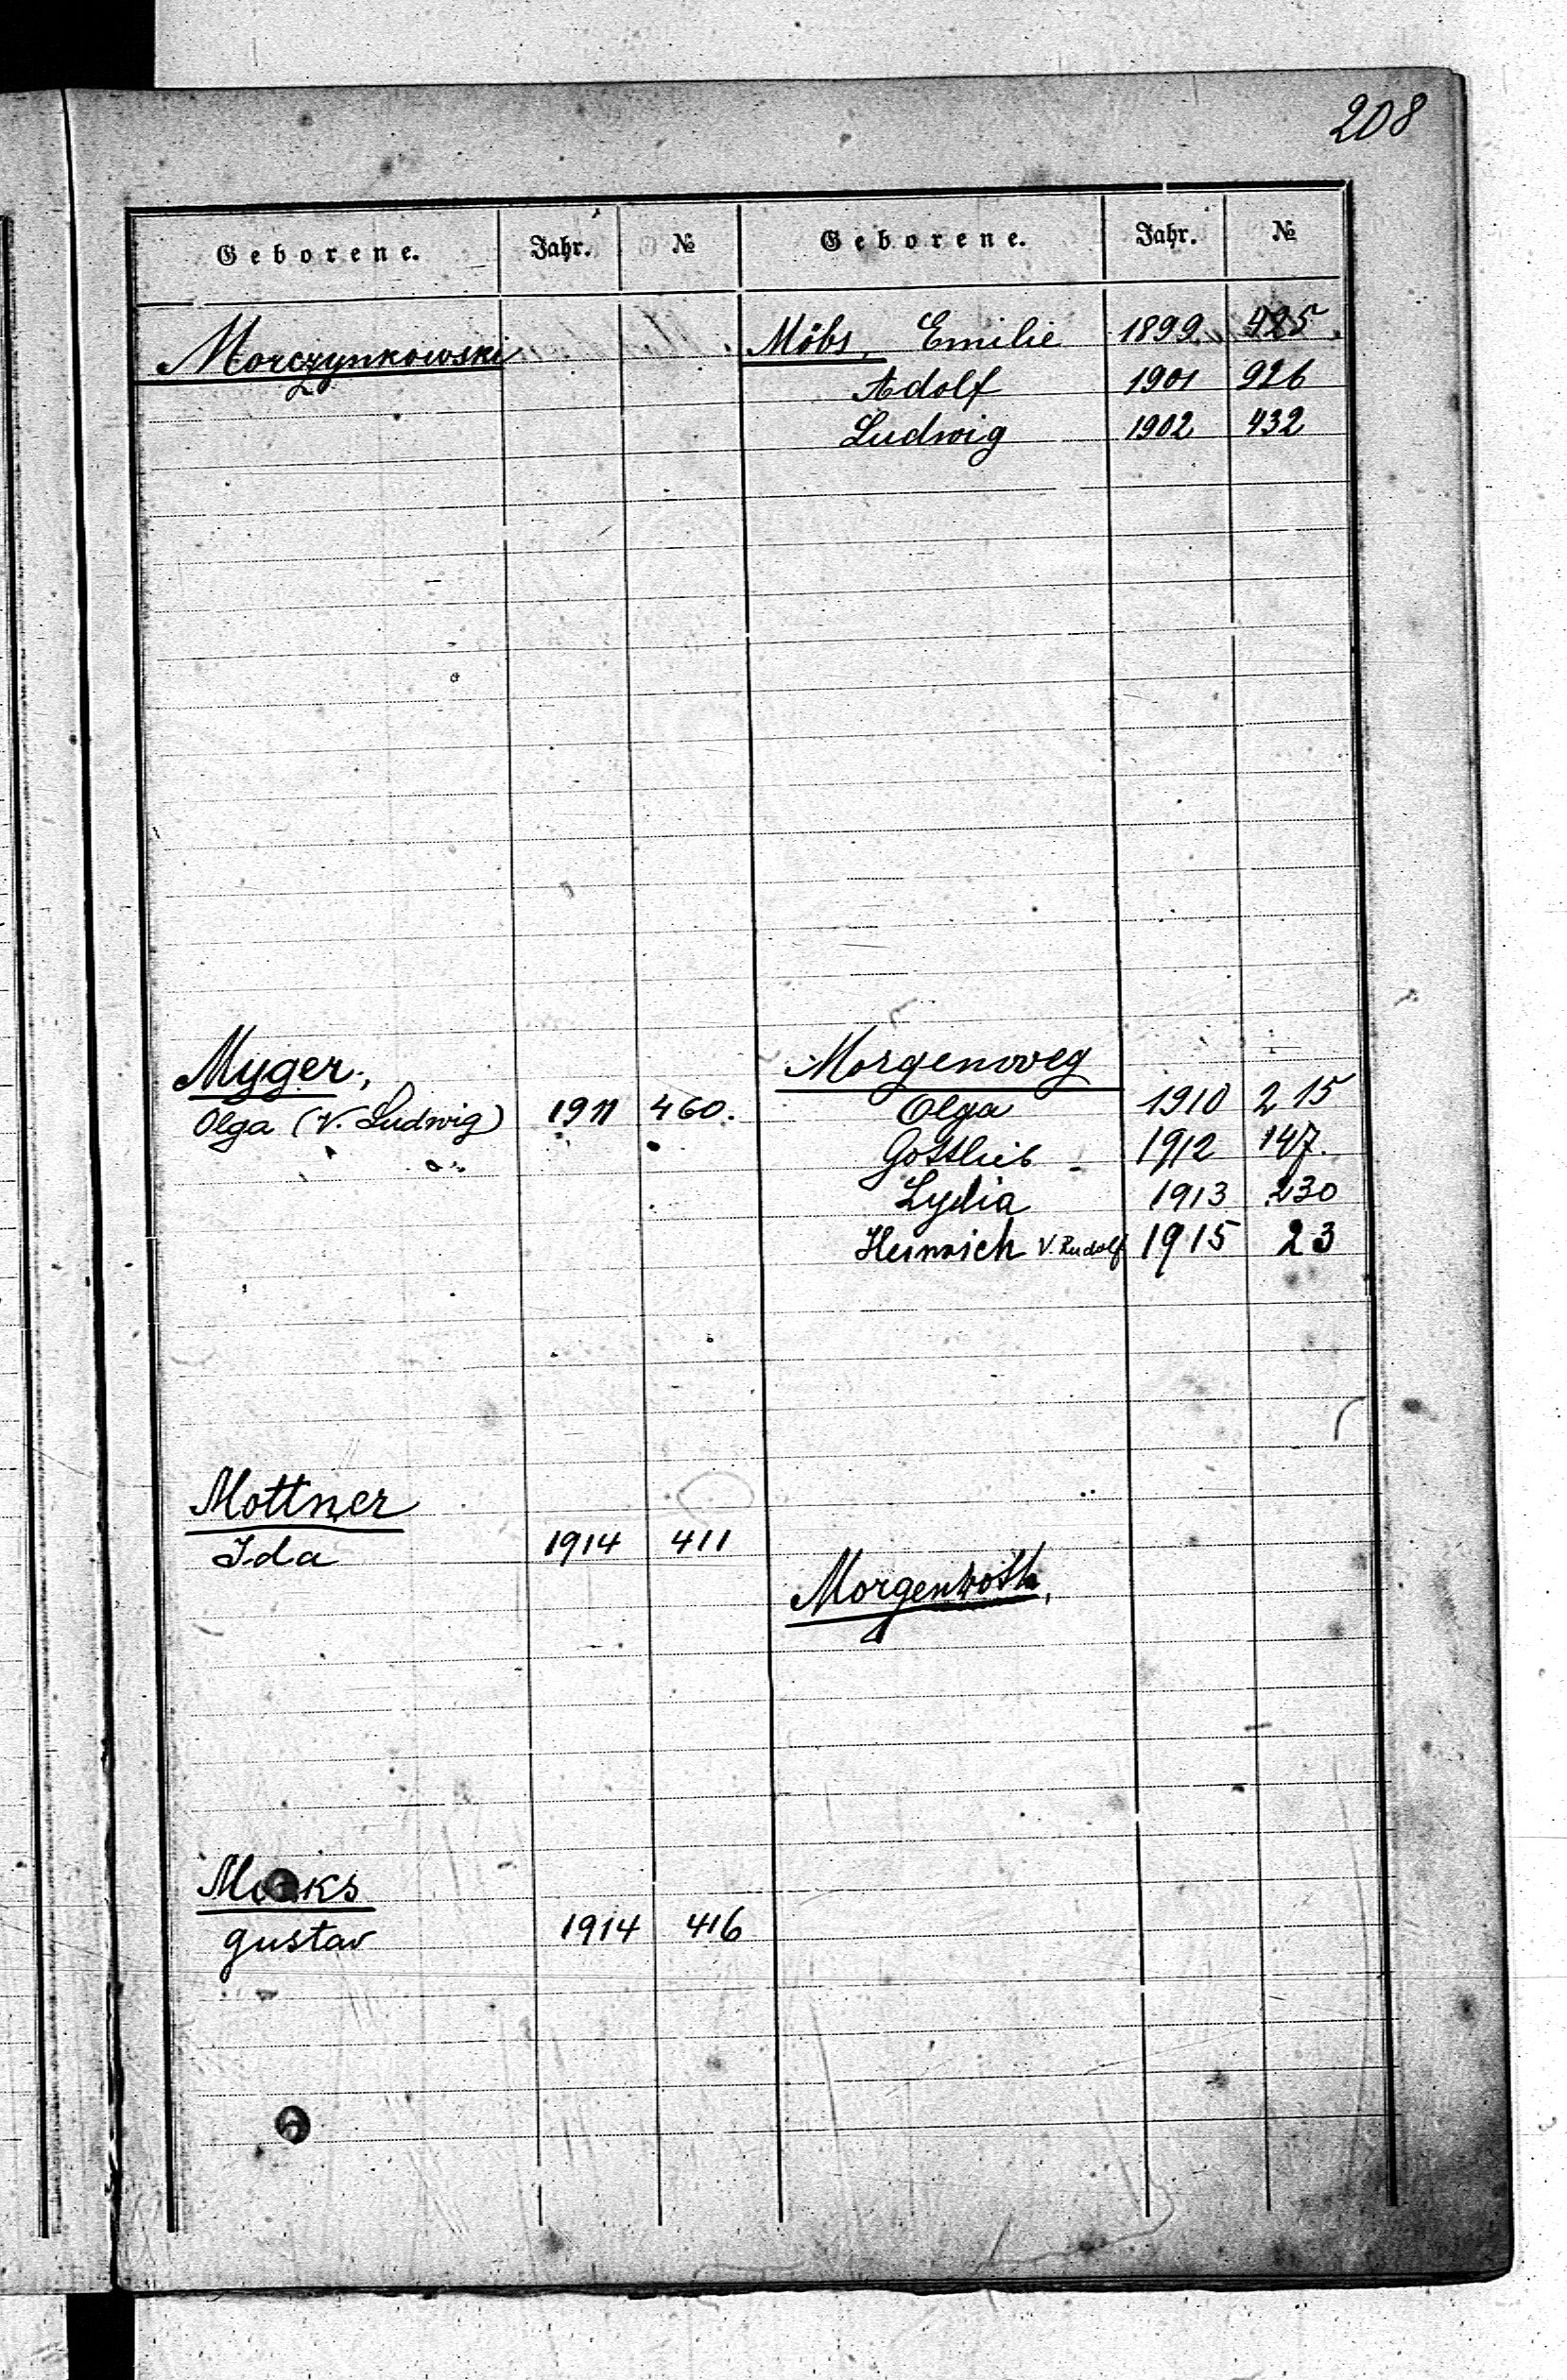 208
Geborene. Jahr. №
Morczynkowski
Myger,
Olga (V. Ludwig) 1911 460.
Mottner
Ida 1914 411
gustav 1914 416
Geborene. Jahr. №
Möbs, Emilie 1899 425
Adolf 1901 926
Ludwig 1902 432
Morgenweg
Olga 1910 215
Gottlieb 1912 147.
Lydia 1913 230
Heinrich V. Rudolf 1915 23
Morgenroth,